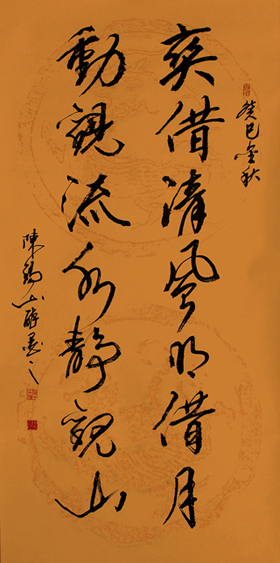 癸巳金秋
爽借清風明借月
動觀流水靜觀山
陳山醉之